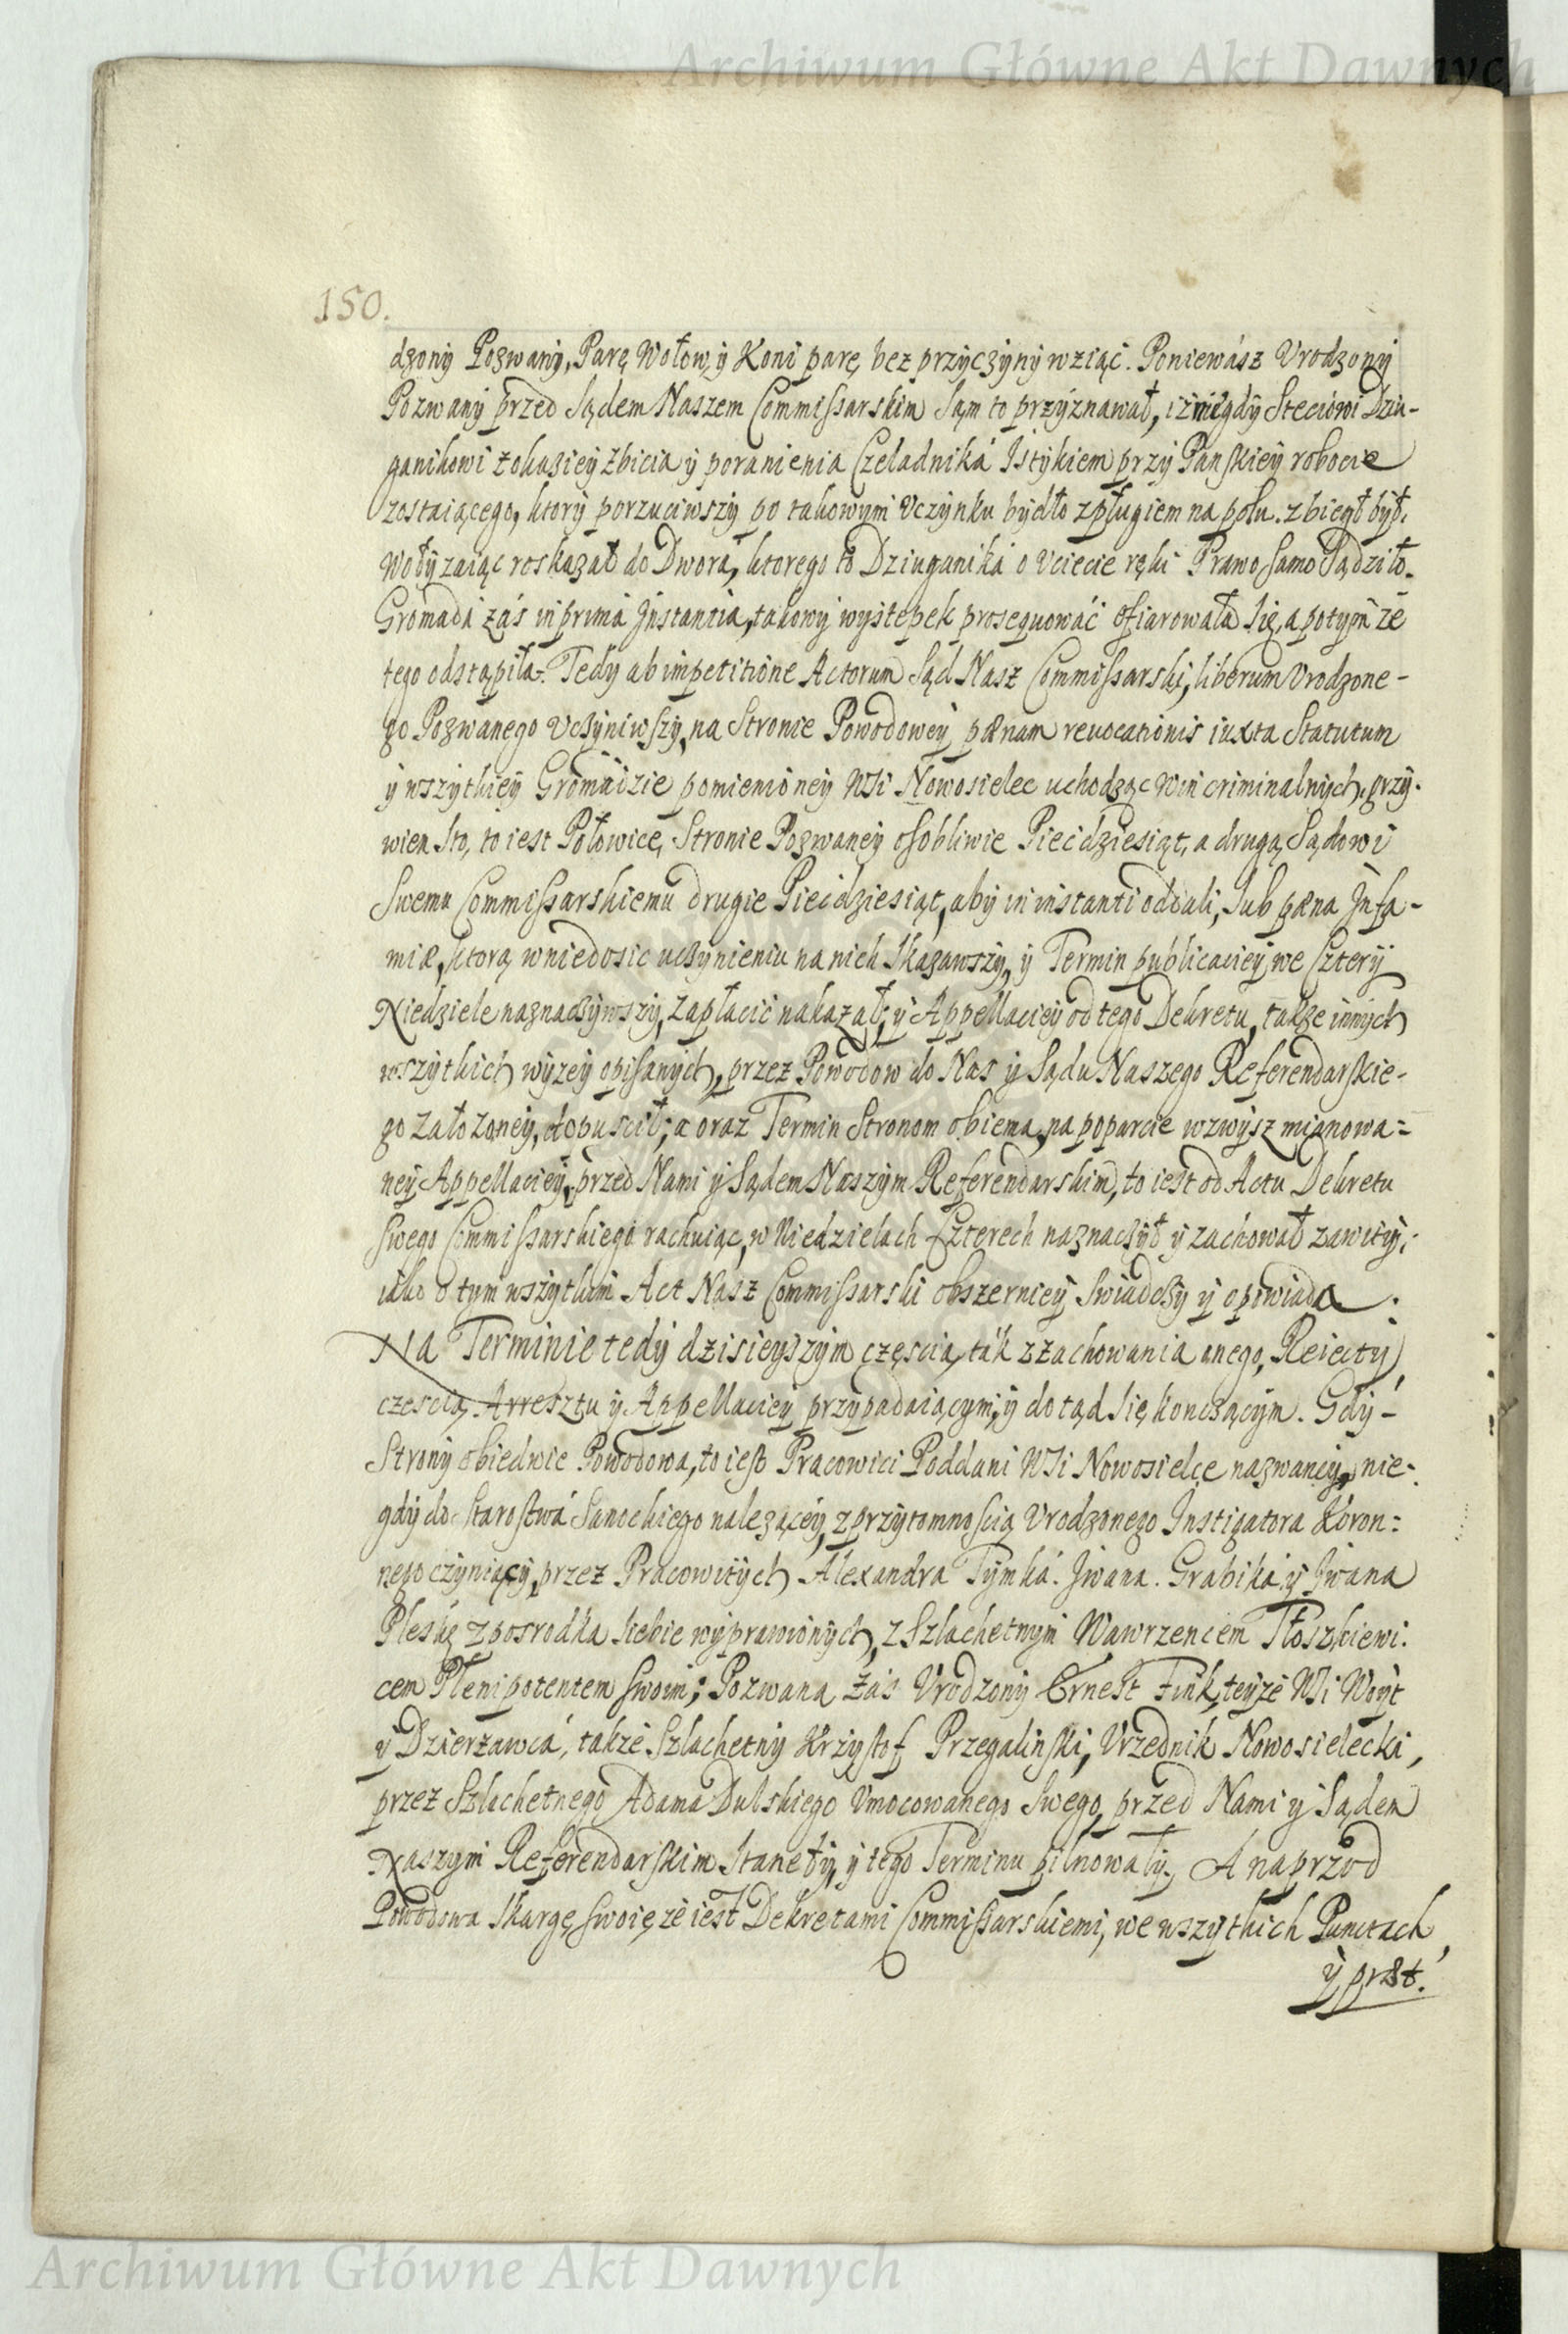 Archiwum Główne Akt Dawnych
150.
dzony Pozwany, Parę Wołow, y Koni parę bez przyczyny wziąć. Poniewász Vrodzony
Pozwany przed Sądem Naszem Commissarskim Sąm to przyznawał, iż niegdy Steciowi Dziu-
ganikowi z okasiey zbicia y poranienia Czeladniká Istykiem przy Panskiey robocie
zostaiącego, ktory porzuciwszy po takowym Vczynku bydło z pługiem na polu. zbiegł był.
Woły zaiąc roskazał do Dworá, ktorego to Dziuganiká o vciecie ręki Prawo samo Sądziło.
Gromadá zás in prima Instantia, takowy wystepek prosequowáć ofiarowała się, a potym ze
tego odstąpiła. Tedy ab impetitione Actorum Sąd Nasz Commissarski, liberum Vrodzone-
go Pozwanego vczyniwszy, na Stronie Powodowey pænam revocationis iuxta Statutum
y wszytkiey Gromádzie pomienioney Wsi Nowosielec uchodząc Win criminalnych, grzy-
wien Sto, to iest Połowicę Stronie Pozwaney osobliwie Piećdziesiąt, a drugą Sądowi
Swemu Commissarskiemu drugie Piećdziesiąt, aby in instanti oddali, Sub pæna Infa-
miæ, ktorą w niedosic uczynieniu na nich Skazawszy, y Termin publicaciey we Cztery
Niedziele naznaczywszy, Zapłacić nakazał; y Appellaciey od tego Dekretu, takze innych
wszytkich wyzey opisanych, przez Powodow do Nas y Sądu Naszego Referendarskie-
go Założoney, dopuscił; a oraz Termin Stronom obiema, na poparcie wzwysz mianowa-
ney Appellaciey, przed Nami y Sądem Naszym Referendarskim, to iest od Actu Dekretu
Swego Commissarskiego rachuiąc, w Niedzielach Czterech naznaczył y zachował zawity;
iáko o tym wszytkim Act Nasz Commissarski obszerniey Swiadczy y opowiada.
Na Terminie tedy dzisieyszym częscią, ták z zachowania onego, Reiecty,
czescią Arresztu y Appellaciey przypadaiącym, y dotąd się konczącym. Gdy-
Strony obiedwie Powodowa, to iest Pracowici Poddani Wsi Nowosielce nazwaney, nie-
gdy do Starostwá Sanockiego nalezącéy, z przytomnoscią Vrodzonego Instigatora Koron-
nego czyniący, przez Pracowitych Alexandra Tymká. Iwana. Grabiká y Iwana
Pleskę z posrodka siebie wyprawionych, z Szlachetnym Wawrzencem Tłoszkiewi-
cem Plenipotentem swoim; Pozwana zás Vrodzony Ernest Fink, teyże Wsi Woyt
y Dzierżawcá, takze Szlachetny Krzysstof Przegalinski, Vrzednik Nowosielecki,
przez Szlachetnego Adama Dulskiego Vmocowanego Swego, przed Nami y Sądem
Naszym Referendarskim Staneły, y tego Terminu pilnowały. A naprzod
Powodowa Skargę swoię, ze iest Dekretami Commissarskiemi, we wszytkich Punctach,
y przst.
Archiwum Główne Akt Dawnych